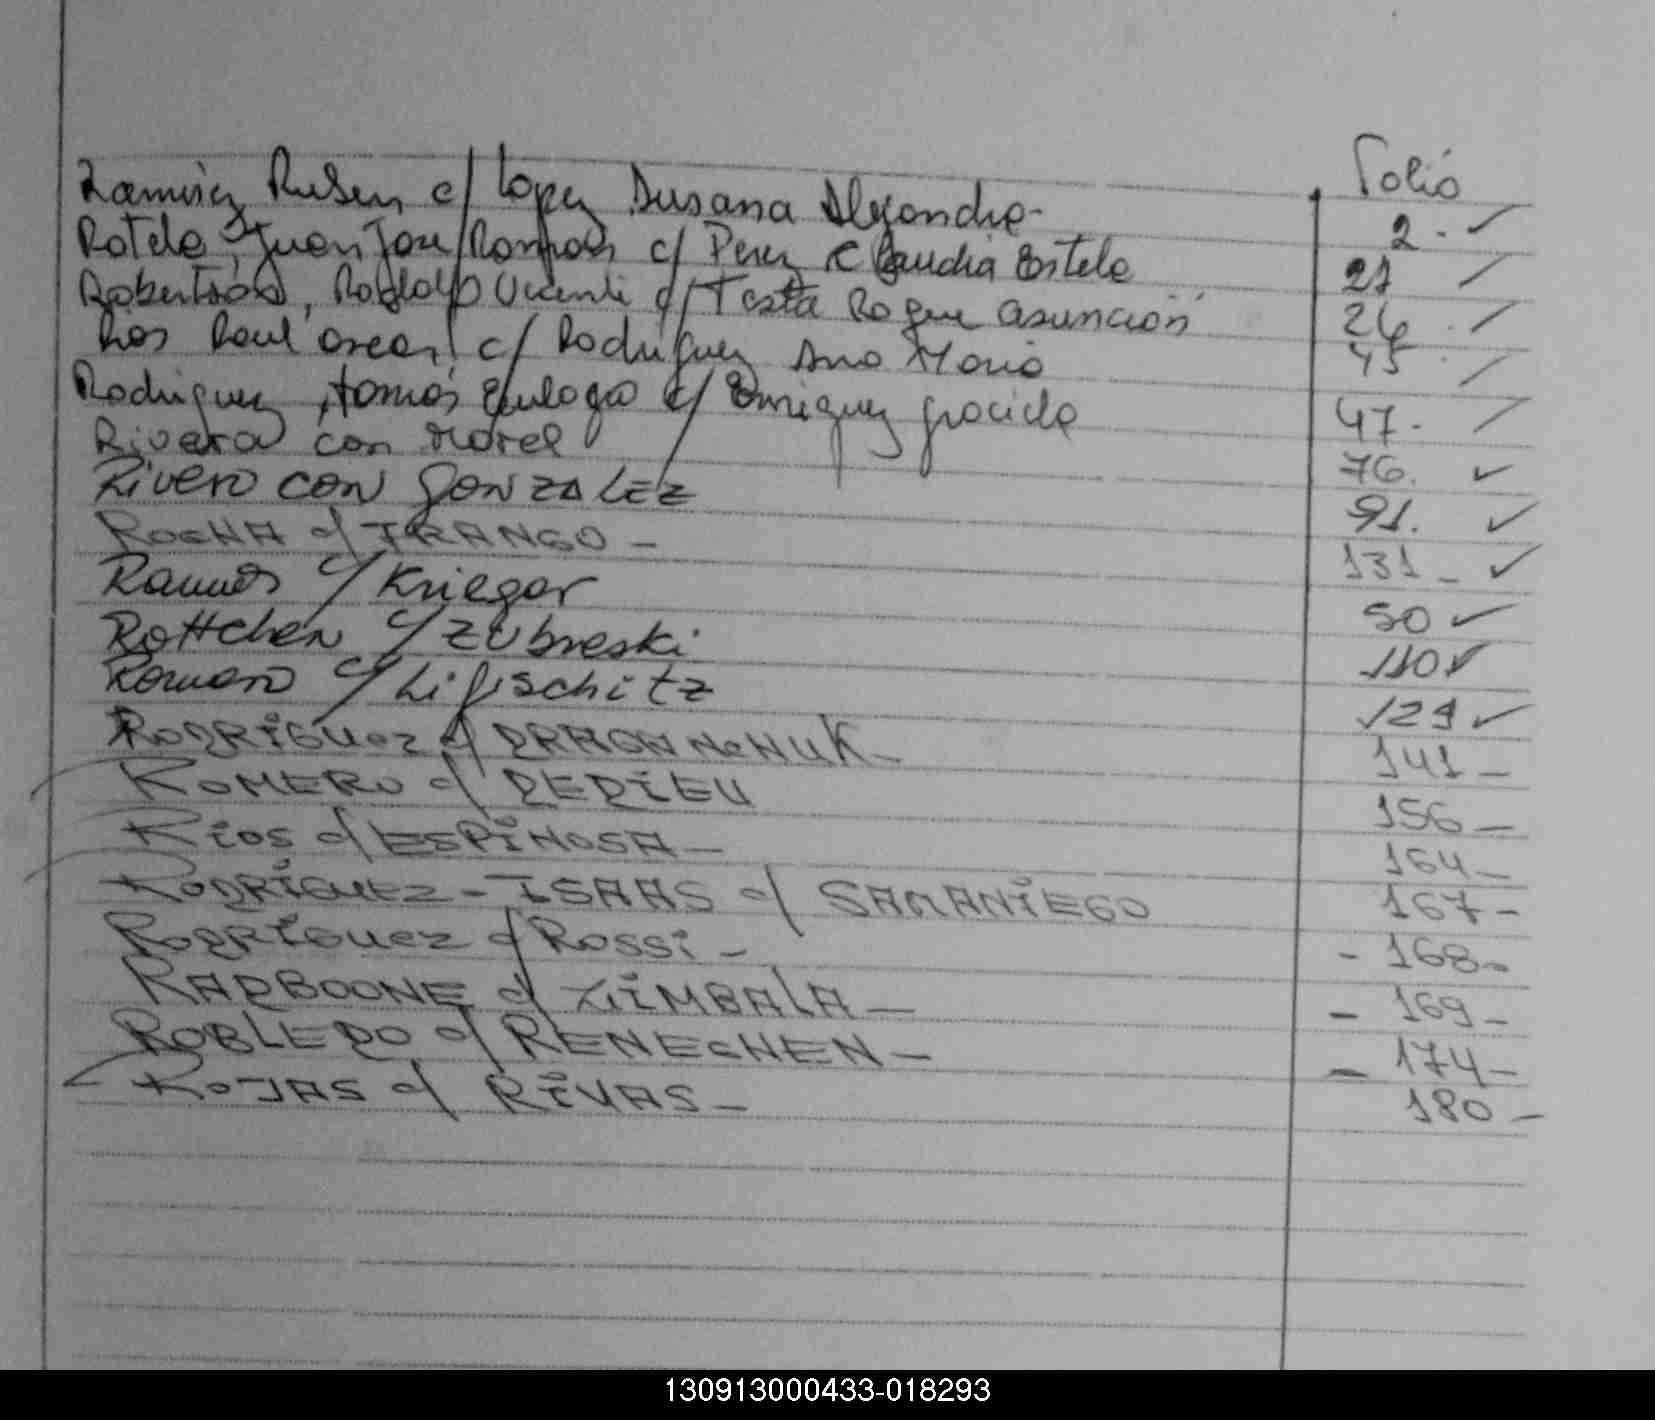 Folió
Ramirez Ruben c/ Lopez Susana Alejandra- 2. ✓
Rotela, Juan Jose c/ Perez Claudia Estela 27
Robertson, Rodolfo Vicente c/ Testa Roque asunción 26
Rios Raul Oscar c/ Rodriguez Ana Maria 45
Rodriguez, tomás Eulogio c/ Enriquez graciela 47.
Rivera con Morel 76. ✓
Rivero con Gonzalez 91. ✓
ROCHA c/ IRANGO - 131 - ✓
Ramos c/ Krieger 50 ✓
Rottchen c/ Zubreski 110 ✓
Romero c/ Lifischitz 129 ✓
RODRiGUez c/ DRAGANcHUK - 141 -
ROMERO c/ DEDiEU 156 -
Rios c/ ESPiNOSA - 164 -
RODRiGUEZ - ISAAS c/ SAMANiEGO 167 -
RODRiGUez c/ Rossi - - 168 -
RADBOONE c/ ZiMBALA - - 169 -
ROBLEDO c/ RENEcHEN - - 174 -
ROJAS c/ RiVAS - 180 -
130913000433-018293